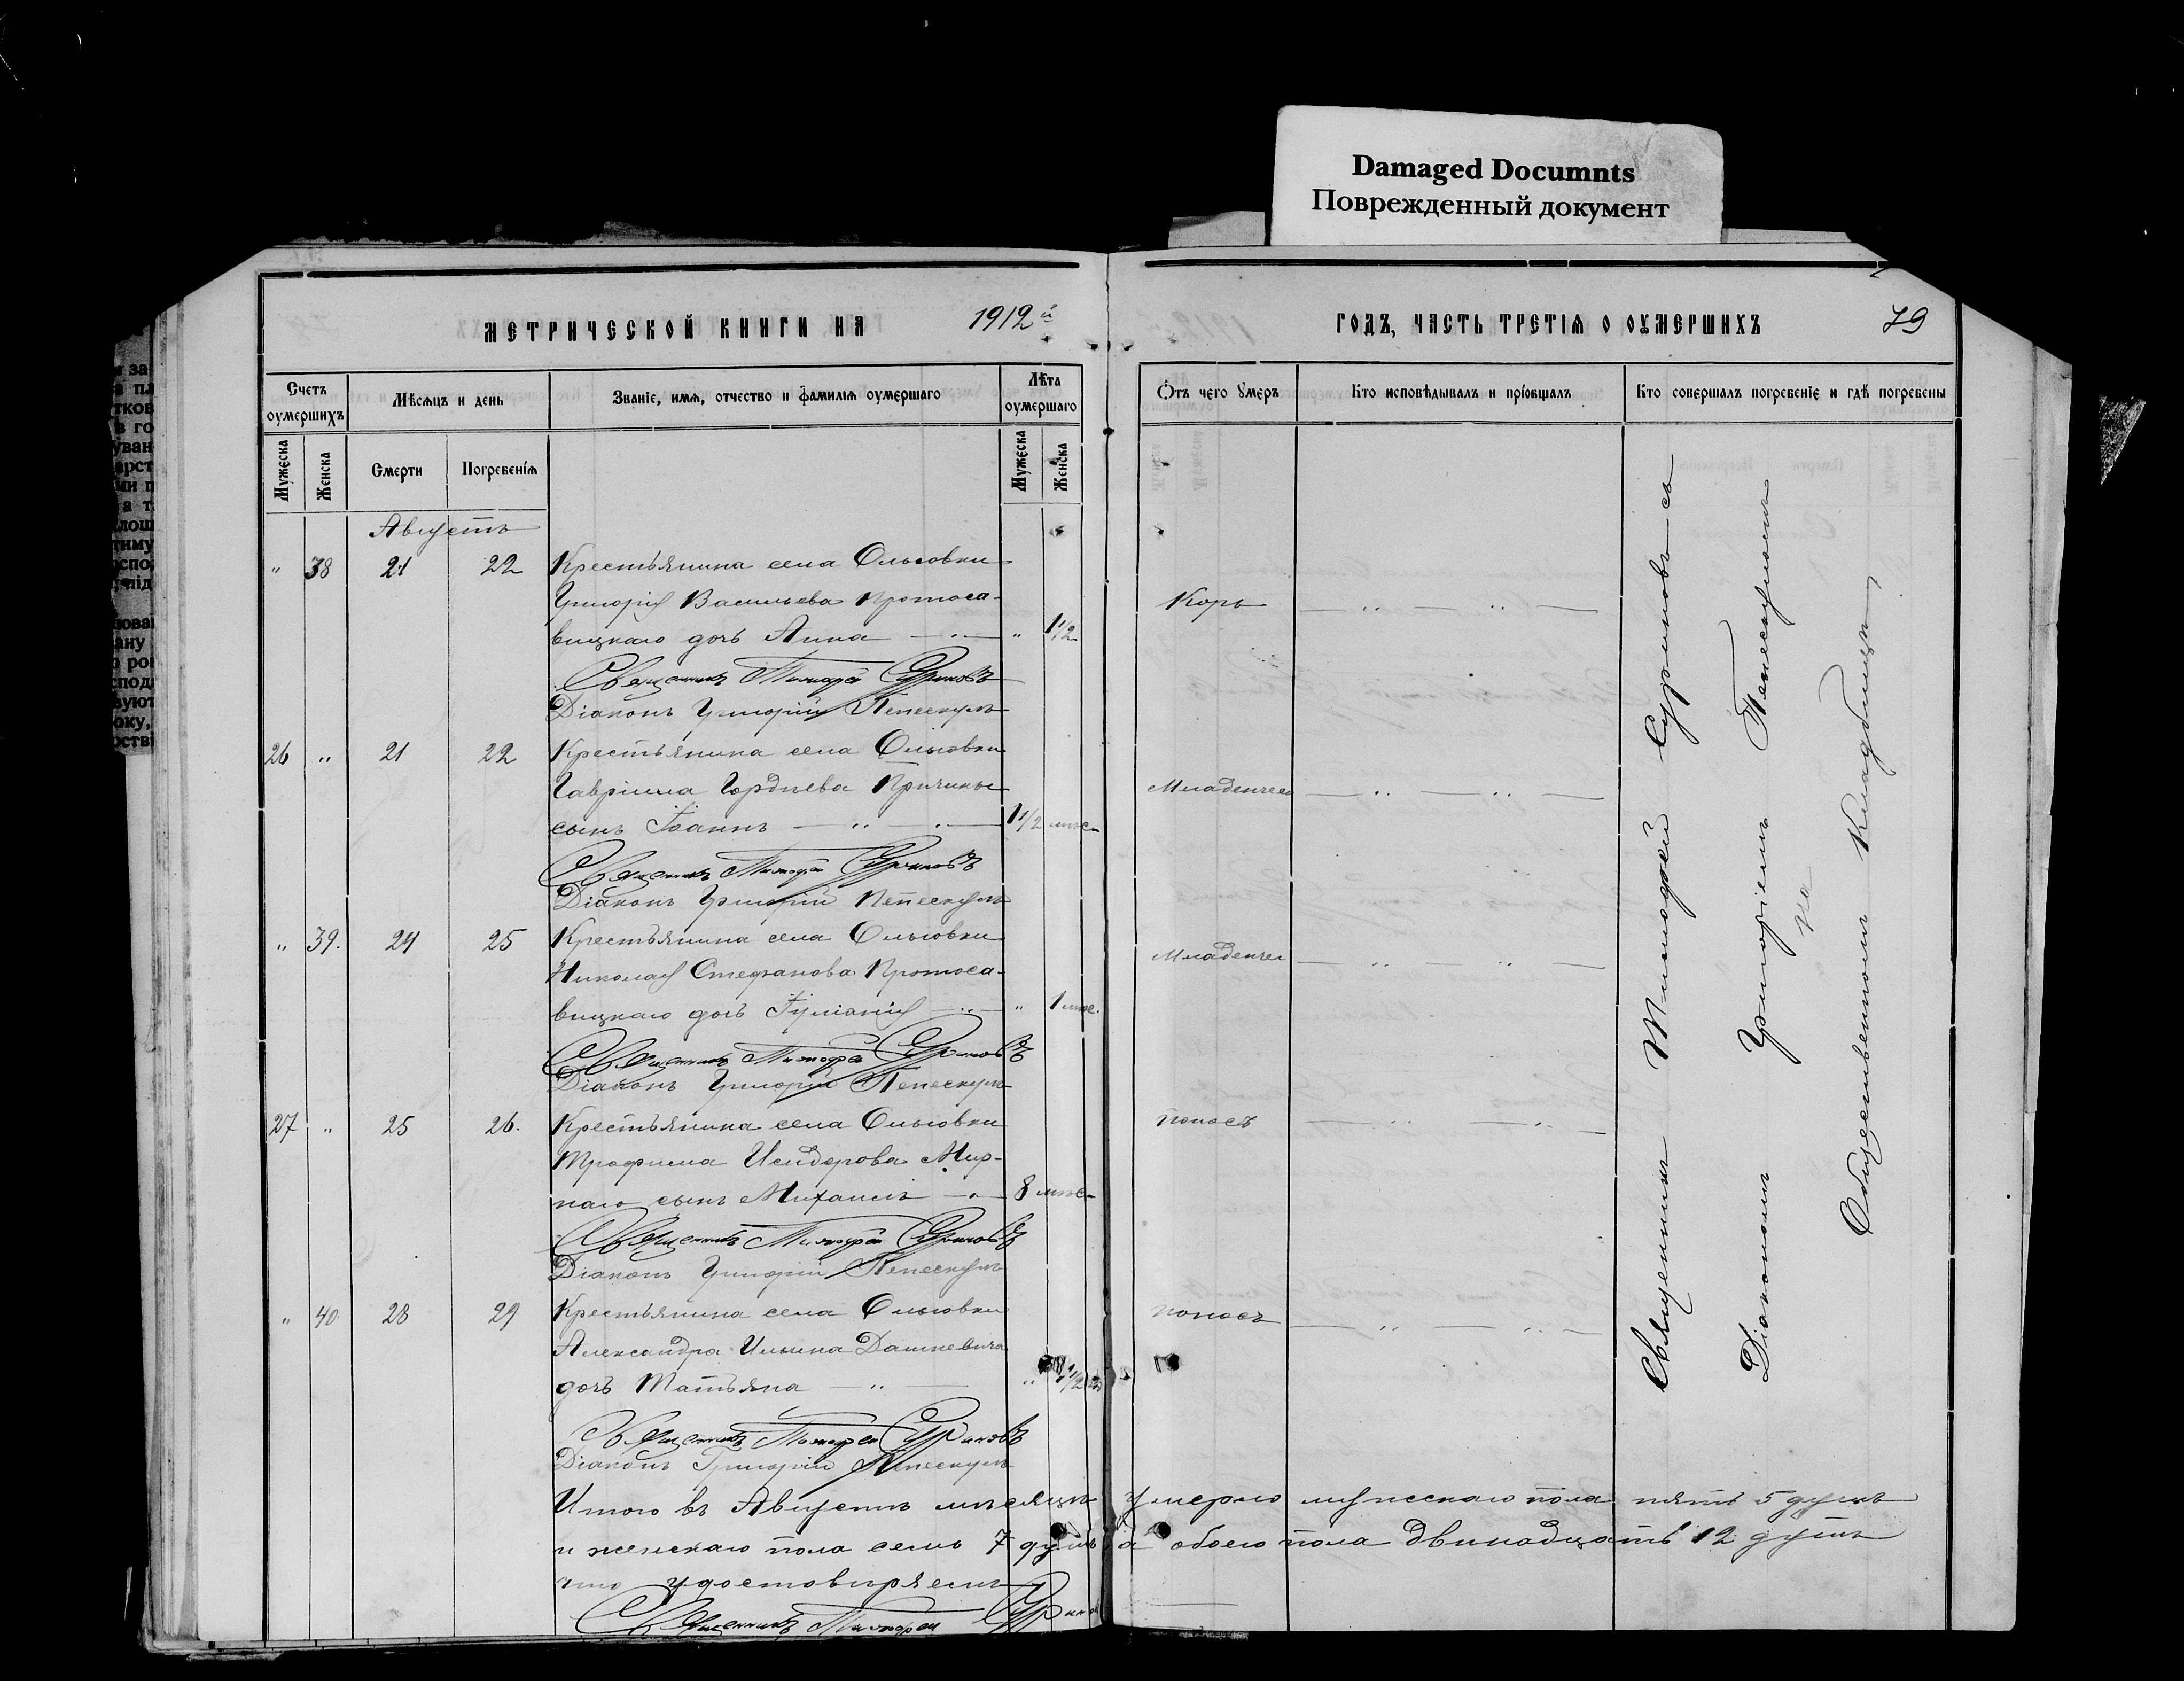 Damaged Documnts
Поврежденный документ
МЕТРИЧЕСКОЙ КНИГИ НА 1912й ГОДЪ, ЧАСТЬ ТРЕТІЯ О ОУМЕРШИХЪ 79
Счетъ оумершихъ
Мѣсяцъ и день
Званіе, имя, отчество и фамилія оумершаго
Лѣта оумершаго
Отъ чего умеръ
Кто исповѣдывалъ и пріобщалъ
Кто совершалъ погребеніе и гдѣ погребены
Мужеска Женска Смерти Погребенія Мужеска Женска
Августъ
" 38 21 22 Крестьянина села Ольговки
Григорія Васильева Протоса-
вицкаго дочь Анна " 1 1/2 Корь
Священникъ Тимофей Суриновъ
Діаконъ Григорій Пепескулъ
26 " 21 22 Крестьянина села Ольговки
Гавріила Гордѣева Причины
сынъ Іоаннъ 1 1/2 мѣс. Младенчес
Священникъ Тимофей Суриновъ
Діаконъ Григорій Пепескулъ
" 39. 24 25 Крестьянина села Ольговки
Николая Стефанова Протоса-
вицкаго дочь Іуліанія " 1 мѣс. Младенчес
Священникъ Тимофей Суриновъ
Діаконъ Григорій Пепескулъ
27 " 25 26. Крестьянина села Ольговки поносъ
Трофима Исидорова Мир-
наго сынъ Михаилъ 8 мѣс.
Священникъ Тимофей Суриновъ
Діаконъ Григорій Пепескулъ
" 40 28 29 Крестьянина села Ольговки поносъ
Александра Ильина Дашкевича
дочь Татьяна " 1/2
Священникъ Тимофей Суриновъ
Діаконъ Григорій Пепескулъ
Священникъ Тимофей Суриновъ съ
Діакономъ Григоріемъ Пепескуломъ
на
Общественномъ кладбищѣ
Итого въ Августѣ мѣсяцѣ умерло мужескаго пола пять 5 душъ
и женскаго пола семь 7 душъ а обоего пола двѣнадцать 12 душъ
что удостовѣряемъ
Священникъ Тимофей Суриновъ